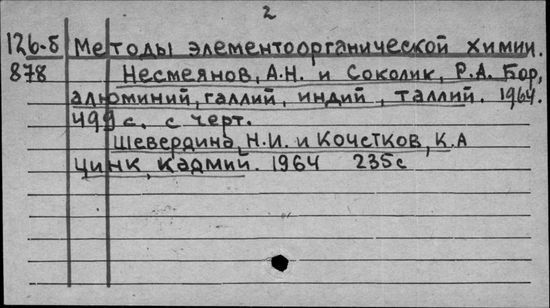 2
126-б Методы элементоорганической химии.
878 Несмеянов, А.Н. и Соколик, Р.А. Бор,
алюминий, галлий, индий, таллий. 1964.
499 с. с черт.
Шевердина, Н.И. и Кочетков, К.А
Цинк, кадмий. 1964 235с